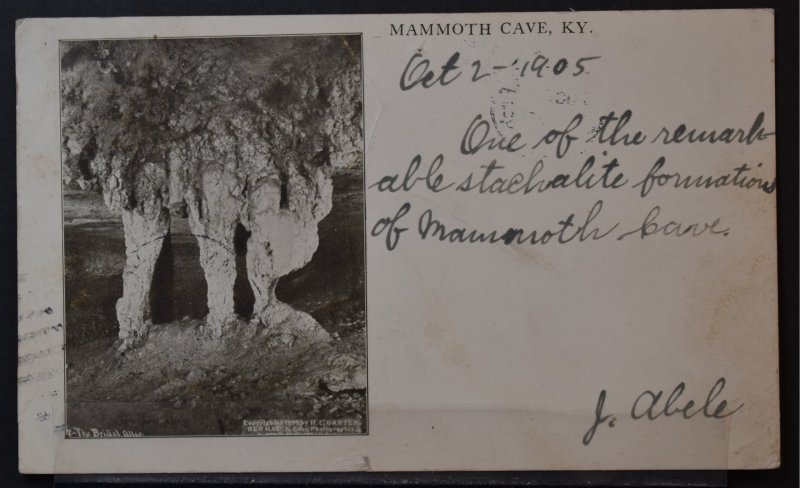 MAMMOTH CAVE, KY.
Oct 2-1905
One of the remark-
able stachalite formations
of Mammoth Cave.
J. Abele
The Bridal Altar
Copyrighted by H. C. GANTER
BEN HAINS, Cave Photographer